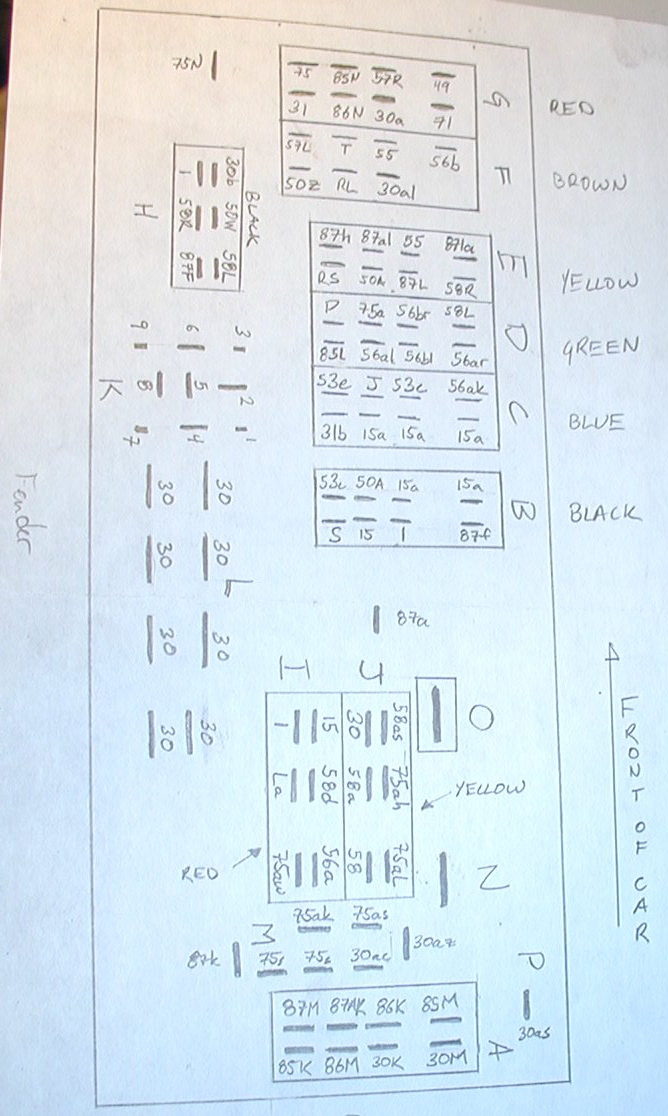 75N
75 85N 57R 49
31 86N 30a 71
G RED
57L T 55 56b
50Z RL 30al
F BROWN
30b 50W 58L
1 58R 87F
BLACK
H
87h 87al 55 87la
RS 50A 87L 58R
E YELLOW
P 75a 56br 58L
85L 56al 56bl 56ar
D GREEN
53e J 53c 56ak
31b 15a 15a 15a
C BLUE
53c 50A 15a 15a
S 15 1 87f
B BLACK
9 6 3
K 8 5 2
7 4 1
30 30
30 30
L
30 30
30 30
Fender
87a
FRONT OF CAR
I J
O
58as 75ah 75aL
30 58a 58
YELLOW
15 58d 56a
1 La 75aw
RED
N
75ak 75as
M
87k 30ac
30az
P
30as
87M 87AK 86K 85M
85K 86M 30K 30M
A